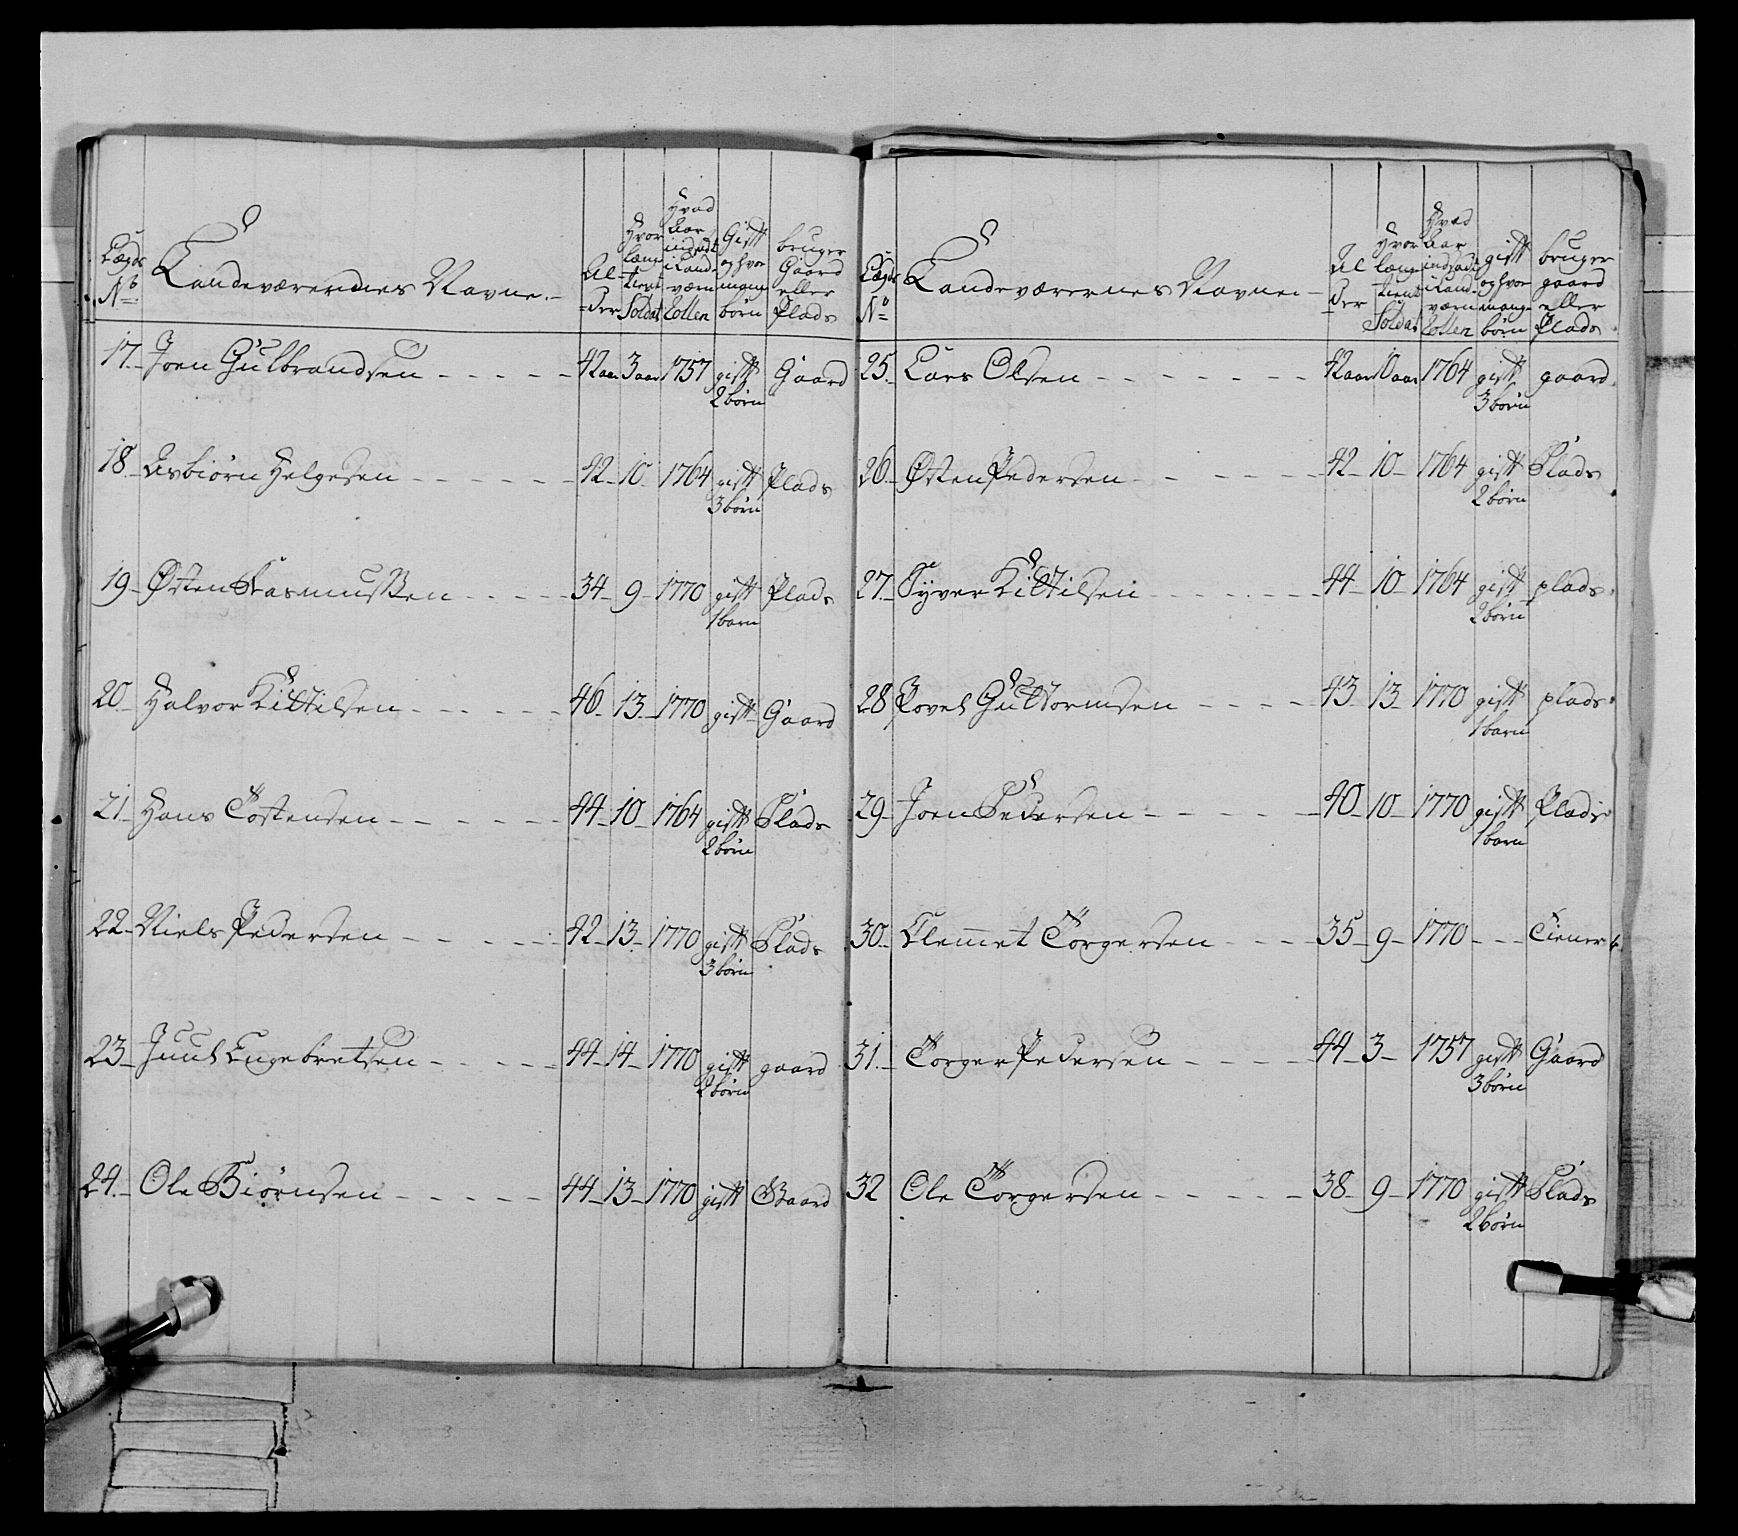 Lægds No Landeværernes Navne. Alder Hvor længe tient Soldat Hvad Aar indsadt i Landværn Rollen Gift og hvor mange børn bruger Gaard eller Plads
17. Joen Gulbrandsen 42 aar 3 aar 1757 gift Gaard
2 børn
18. Asbiørn Helgesen 42 10 1764 gift Plads
3 børn
19 Østen Rasmussen 34 9 1770 gift Plads
1 barn
20 Halvor Kittilsen 46 13 1770 gift Gaard
21 Hans Tostensen 44 10 1764 gift Plads
2 børn
22 Niels Pedersen 42 13 1770 gift Plads
3 børn
23 Juul Engebretsen 44 14 1770 gift gaard
2 børn
24. Ole Biørnsen 44 13 1770 gift Gaard
Lægds No Landeværernes Navne Alder Hvor længe tient Soldat Hvad Aar indsadt i Landværn Rollen gift og hvor mange børn bruger gaard eller Plads
25. Lars Olsen 42 aar 10 aar 1764 gift gaard
3 børn
26 Østen Pedersen 42 10 1764 gift Plads
2 børn
27. Syver Kittilsen 44 10 1764 gift plads
2 børn
28 Povel Guttormsen 43 13 1770 gift plads
1 barn
29 Joen Pedersen 40 10 1770 gift Plads
1 barn
30 Clemet Torgersen 35 9 1770 Tiener
31. Torger Pedersen 44 3 1757 gift Gaard
3 børn
32 Ole Torgersen 38 9 1770 gift Plads
2 børn